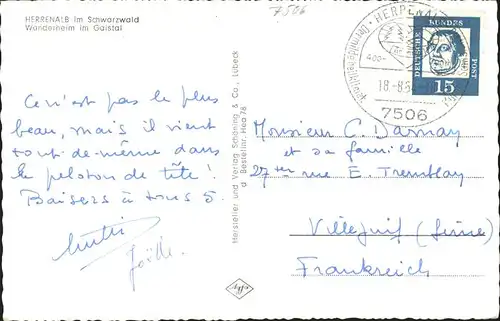 HERRENALB im Schwarzwald
Wanderheim im Gaistal
7506
Ce n'est pas le plus
beau, mais il vient
tout-de-même dans
le peloton de tête !
Baisers à tous 5.
Joëlle.
Hersteller und Verlag Schöning & Co., Lübeck
Bestellnr. Hea 78
agfa
HERRENALB
400-
18.-8.
7506
DEUTSCHE BUNDESPOST
15
Monsieur C. Darnay
et sa famille
27ter rue E. Tremblay
Villejuif (Seine)
Frankreich